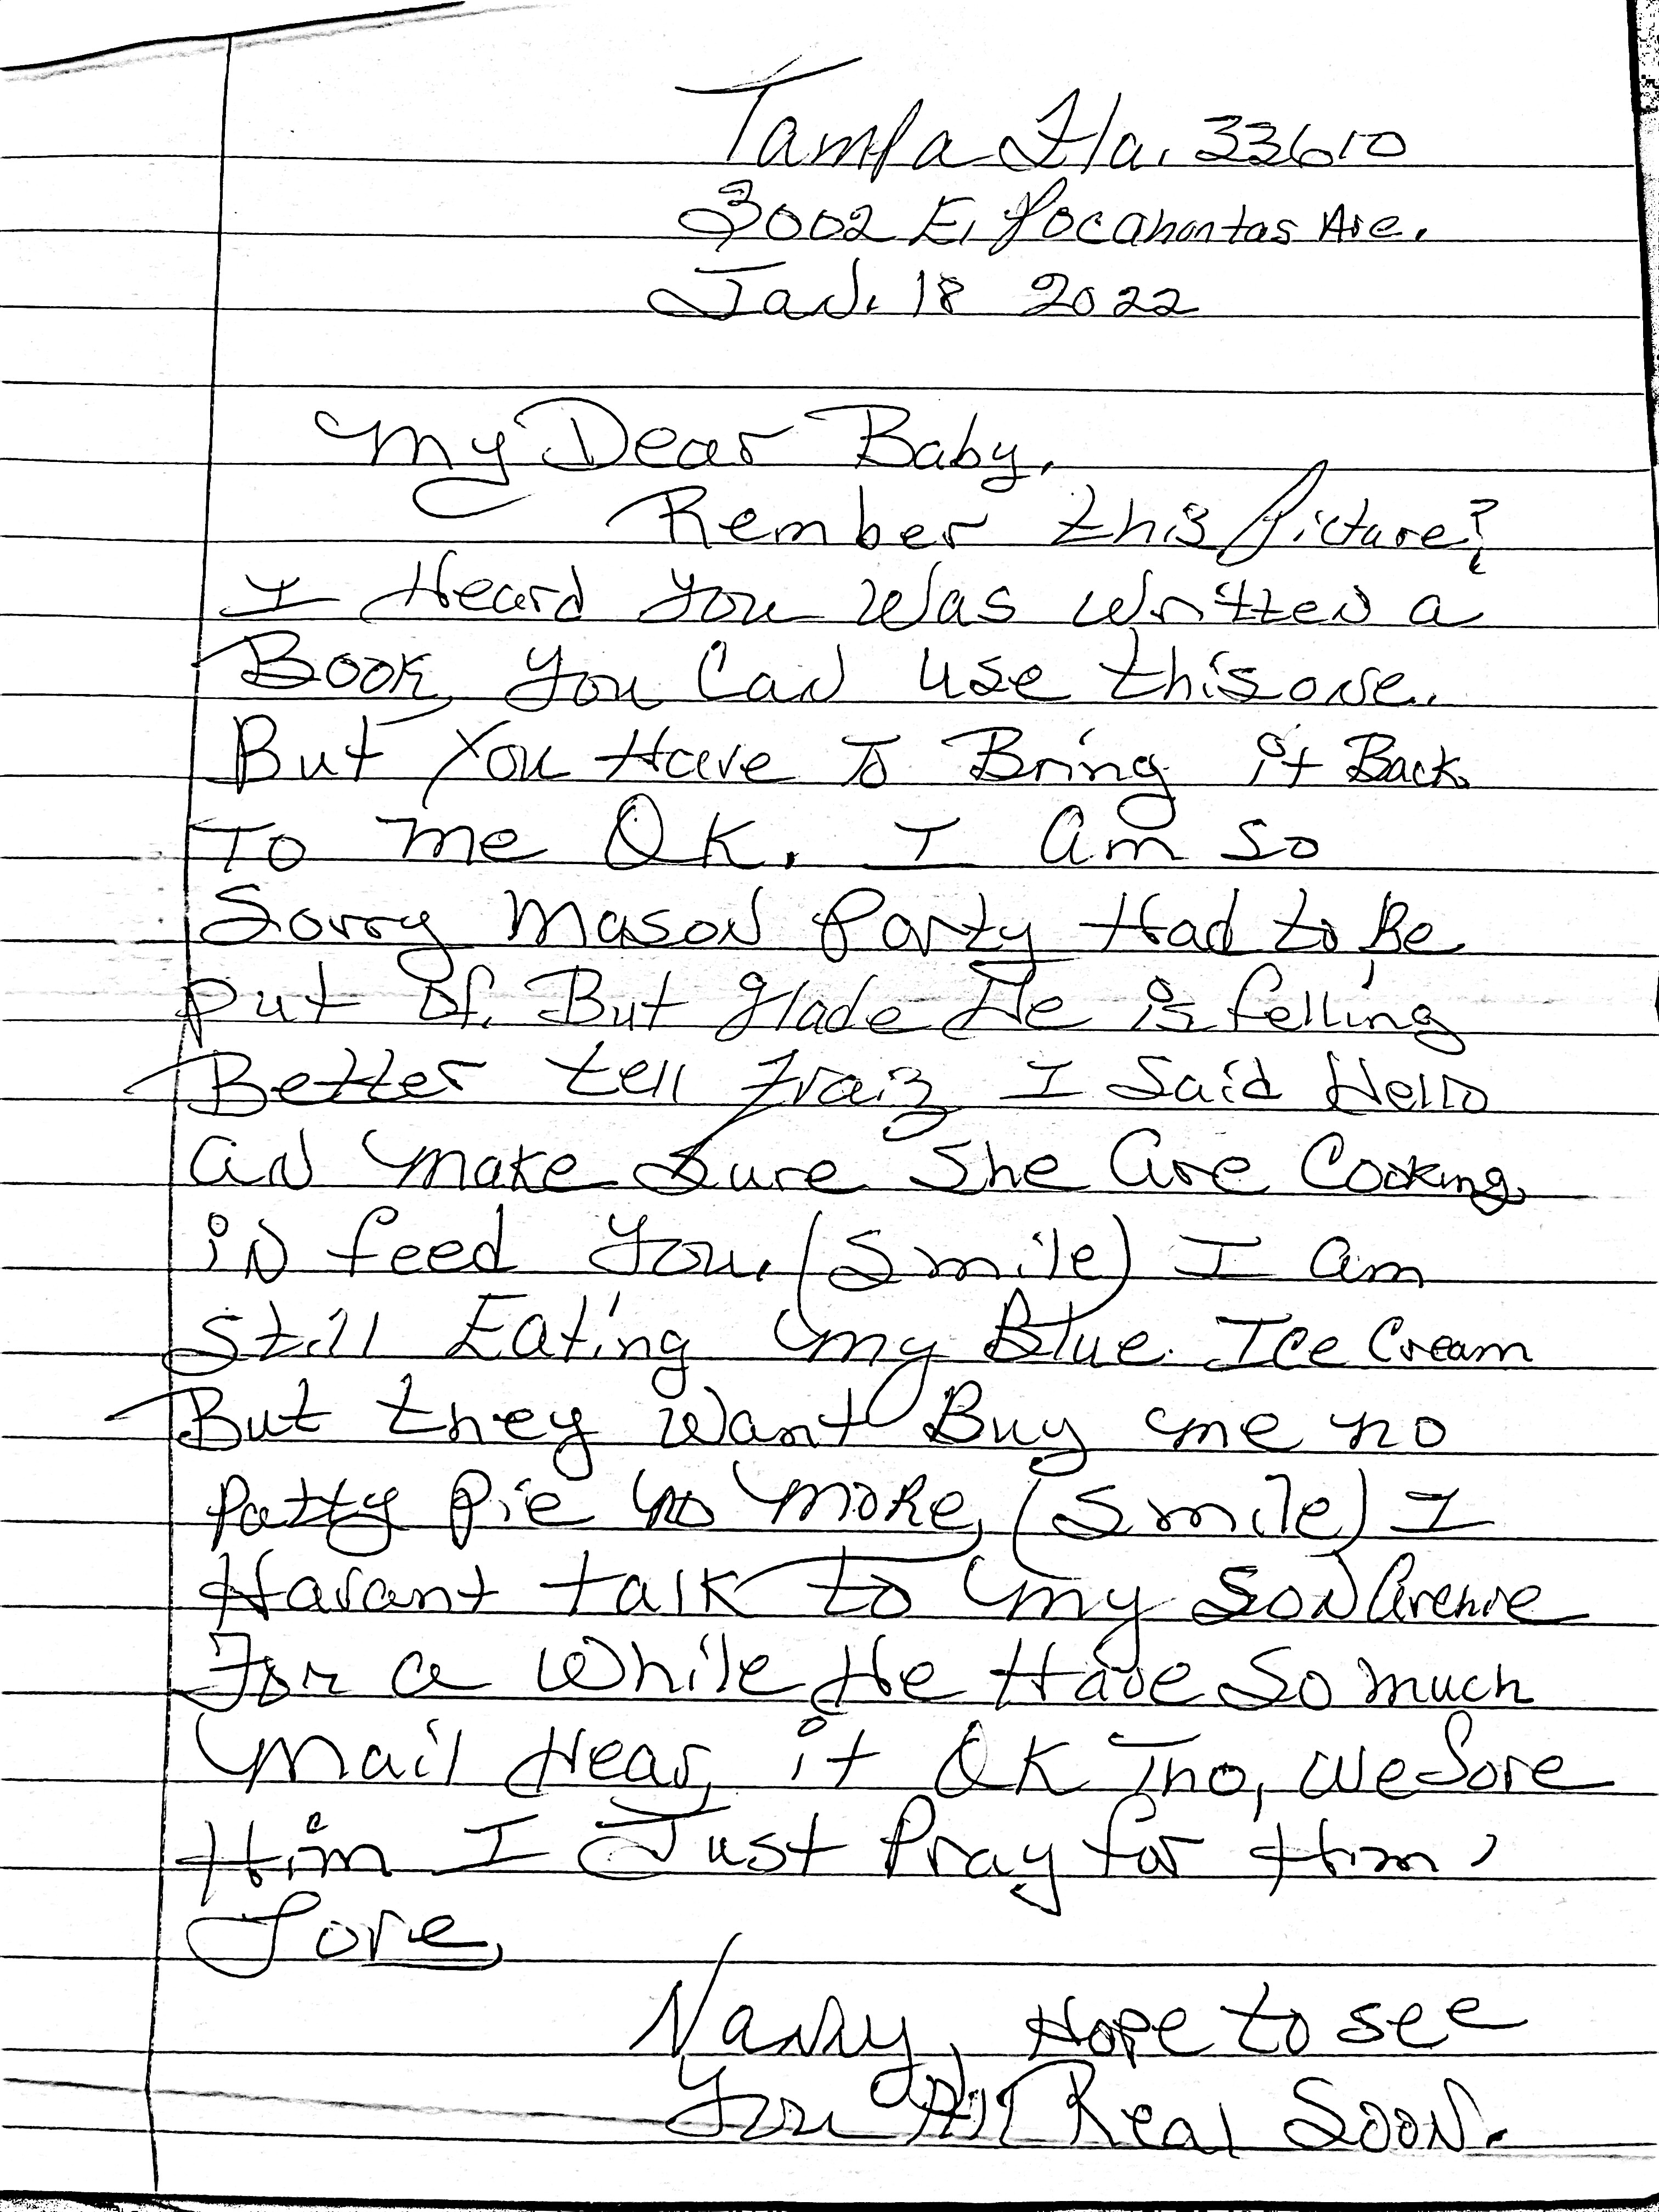 Tampa Fla. 33610
3002 E. Pocahontas Ave.
Jan. 18 2022
My Dear Baby,
Rember this picture?
I Heard you was written a
Book, you Can use this one.
But You Have To Bring it Back
To me OK. I am so
Sorry Mason Party Had to Be
put of. But glade He is felling
Better tell I Said Hello
an make Sure She are Cooking
in feed you. (Smile) I am
still Eating my Blue Ice Cream
But they want Buy me no
Patty Pie no more, (Smile) I
Havant talk to my Son
For a while He Have So much
Mail Hear, it OK Tho, we Love
Him I Just Pray for Him,
Love,
Nanny, Hope to see
you All Real Soon.